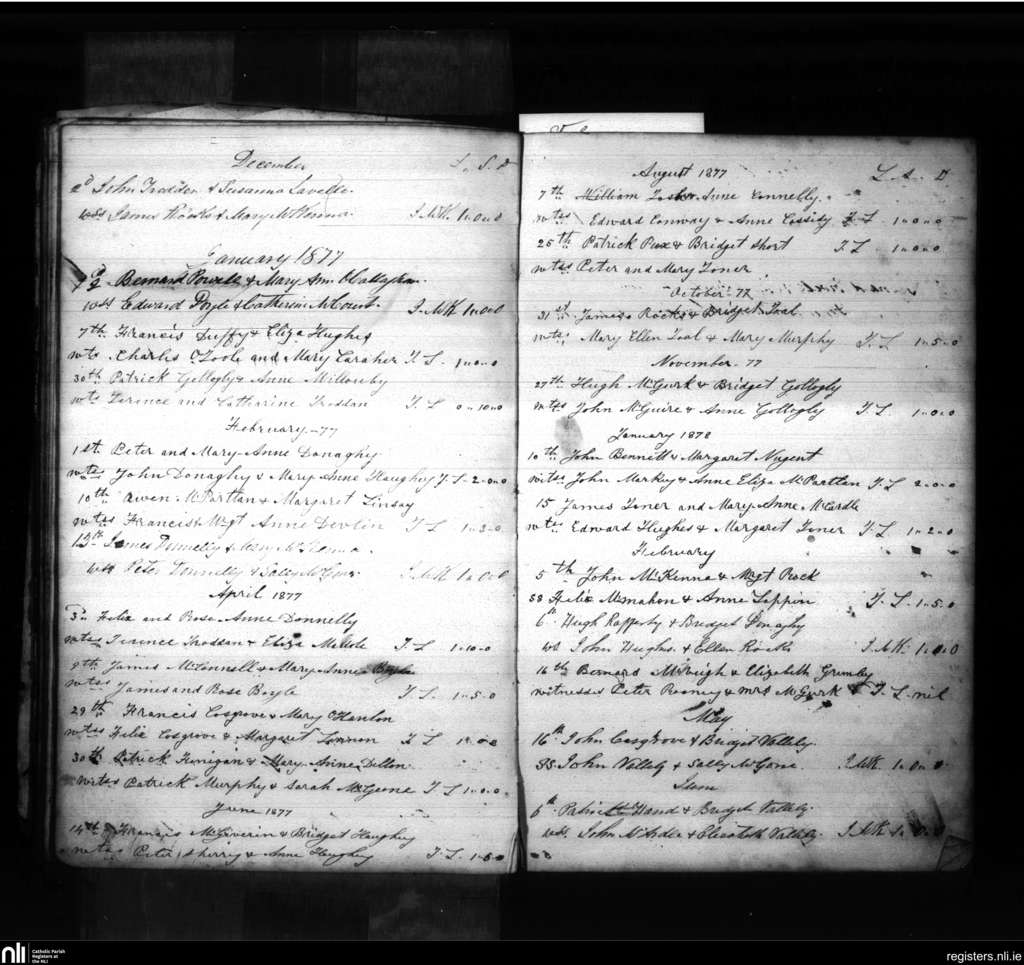 December L. S. D
2d John Troddan & Susanna Lavelle.
wss James Rooks & Mary McKenna. J. McK. 1..0..0
January 1877
Bernard Powell & Mary Ann O'Callaghan.
wss Edward Doyle & Catherine McCourt. J. McK 1..0..0
7th Francis Duffy & Eliza Hughes
wts Charles O'Toole and Mary Caraher T. L. 1..0..0
30th Patrick Gollogly & Anne
wts Terence and Catharine Troddan T. L 0..10..0
February..77
1st Peter and Mary Anne Donaghy
wtes John Donaghy & Mary Anne Haughey T. L 2..0..0
10th Owen McPartlan & Margaret Linsay
wtes Francis & Mgt Anne Devlin T. L 1..3..0
13th James Donnelly & Mary McKenna.
wss Peter Donnelly & Sally J. McK 1..0..0
April 1877
3d Felix and Rose Anne Donnelly
wtes Terence Troddan & Eliza T. L 1..10..0
9th James McConnell & Mary Anne Boyle
wtes James and Rose Boyle T. L 1..5..0
29th Francis Cosgrove & Mary O'Hanlon
wtes Felix Cosgrove & Margaret Lennon T. L 1..0..0
30th Patrick Finigan & Mary Anne Dillon
wtes Patrick Murphy & Sarah McGeene T. L 1..0..0.
June 1877
14th Francis McGiverin & Bridget Haughey
wtes Peter Sherry & Anne Haughey T. L. 1..5..0
August 1877 L s. D
7th William & Anne Connelly.
wtes Edward Conway & Anne Cassidy T. L 1..0..0
25th Patrick & Bridget Short T. L 1..0..0
wtes Peter and Mary Toner
October..77
31st James Rocks & Bridget Toal
wtes Mary Ellen Toal & Mary Murphy T. L 1..5..0
November..77
27th Hugh McGurk & Bridget Gollogly
wtes John McGuire & Anne Gollogly T. L. 1..0..0
January 1878
10th John Bennett & Margaret Nugent
wits John Markey & Anne Eliza McPartlan T. L 2..0..0
15 James Toner and Mary Anne McArdle
wtes Edward Hughes & Margaret Toner T. L 1..2..0
February
5th John McKenna & Mgt Rock
SS Felix McMahon & Anne Lappin T. L. 1..5..0
6th Hugh Rafferty & Bridget Donaghy
ws John Hughes. & Ellen Rocks J. McK: 1..0..0
16th Bernard McVeigh & Elizabeth Grimley
witnesses Peter Rooney & mrs McGurk T. L. nil
May
16th John Cosgrove & Bridget Vallely.
SS. John Vallely & Sally McGone. J. McK 1..0..0
June
6th Patrick Hand & Bridget Vallely.
wss. John McArdle & Elizabeth Vallely. J. McK 1..0..0
nli
Catholic Parish
Registers at
the NLI
registers.nli.ie